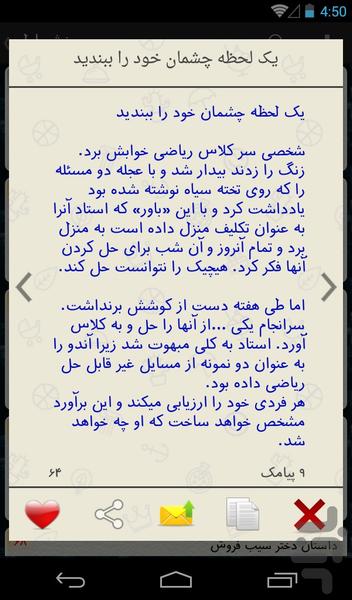 4:50
یک لحظه چشمان خود را ببندید
یک لحظه چشمان خود را ببندید
شخصی سر کلاس ریاضی خوابش برد.
زنگ را زدند بیدار شد و با عجله دو مسئله
را که روی تخته سیاه نوشته شده بود
یادداشت کرد و با این «باور» که استاد آنرا
به عنوان تکلیف منزل داده است به منزل
برد و تمام آنروز و آن شب برای حل کردن
آنها فکر کرد. هیچیک را نتوانست حل کند.
اما طی هفته دست از کوشش برنداشت.
سرانجام یکی ...از آنها را حل و به کلاس
آورد. استاد به کلی مبهوت شد زیرا آندو را
به عنوان دو نمونه از مسایل غیر قابل حل
ریاضی داده بود.
هر فردی خود را ارزیابی میکند و این برآورد
مشخص خواهد ساخت که او چه خواهد
شد.
۹ پیامک
۶۴
داستان دختر سیب فروش
۶۸